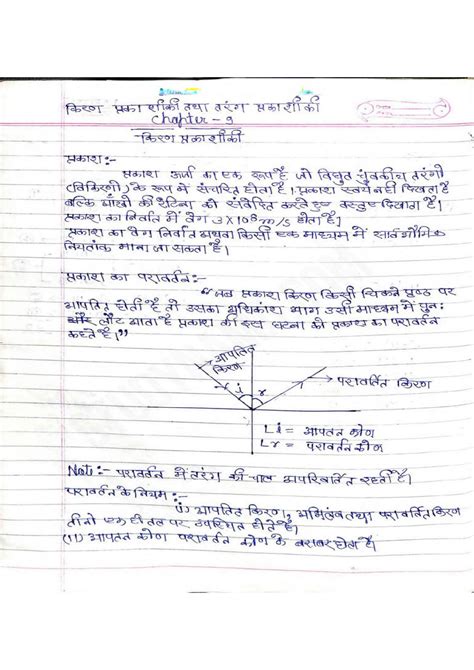 किरण प्रकाशीकी तथा तरंग प्रकाशीकी
Chapter - 9
किरण प्रकाशीकी
प्रकाश:-
प्रकाश ऊर्जा का एक रूप है जो विद्युत चुंबकीय तरंगो
(विकिरणों) के रूप में संचारित होता है। प्रकाश स्वयं नहीं दिखाता है
बल्कि आँखों की रेटिना को संवेदित करते हुए वस्तुए दिखाता है।
प्रकाश का निर्वात में वेग 3×108 m/s होता है।
प्रकाश का वेग निर्वात अथवा किसी एक माध्यम में सार्वभौमिक
नियतांक माना जा सकता है।
प्रकाश का परावर्तन:-
"जब प्रकाश किरण किसी चिकने पृष्ठ पर
आपतित होती है तो उसका अधिकांश भाग उसी माध्यम में पुन:
लौट आता है प्रकाश की इस घटना को प्रकाश का परावर्तन
कहते है।"
आपतित
किरण
i r
परावर्तित किरण
Li = आपतन कोण
Lr = परावर्तन कोण
Note:- परावर्तन में तरंग की चाल अपरिवर्तित रहती है।
परावर्तन के नियम:-
(i) आपतित किरण, अभिलंब तथा परावर्तित किरण
तीनो एक ही तल पर उपस्थित होते है।
(11) आपतन कोण परावर्तन कोण के बराबर होता है।